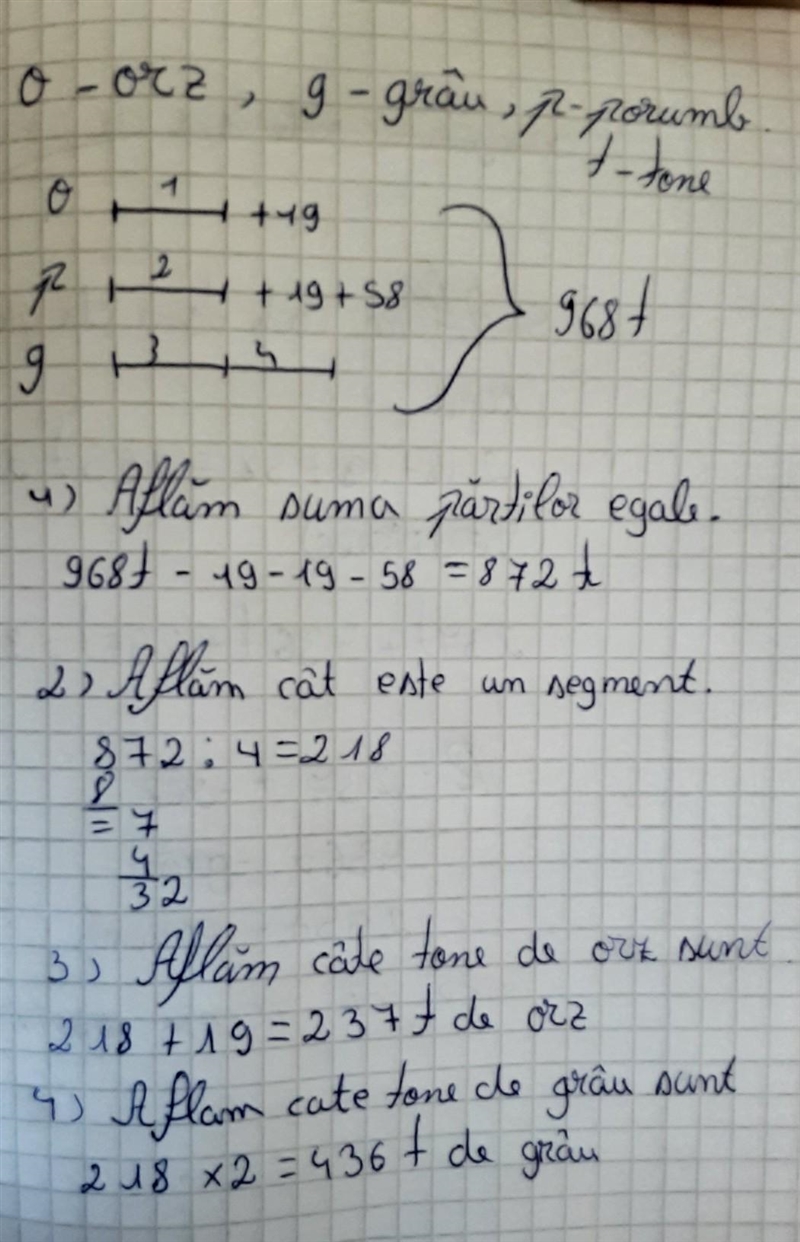 o - orz, g - grâu, p - porumb.
t - tone
o 1 +19
p 2 +19+58
g 3 4
968t
1) Aflăm suma părților egale.
968t - 19 - 19 - 58 = 872 t
2) Aflăm cât este un segment.
872 : 4 = 218
8
= 7
4
32
3) Aflăm câte tone de orz sunt.
218 + 19 = 237 t de orz
4) Aflam cate tone de grâu sunt
218 x 2 = 436 t de grâu